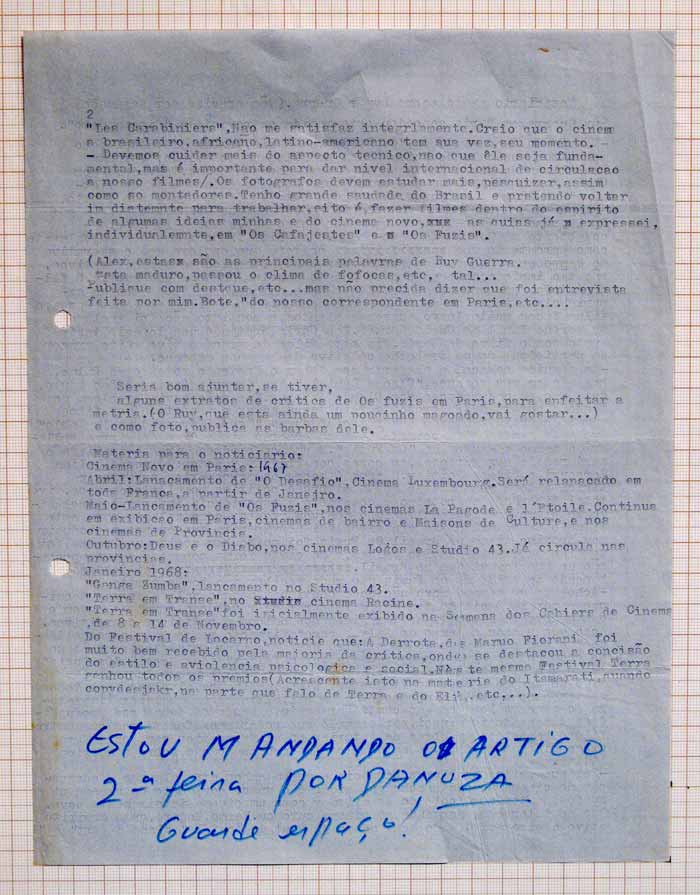 2
"Les Carabiniers",Não me satisfaz integrlamente.Creio que o cinem
a brasileiro,africano,latino-americano tem sua vez,seu momento. -
- Devemos cuidar mais do aspecto tecnico,nao que êle seja funda-
mental,mas é importante para dar nivel internacional de circulacao
a nosso filmes/.Os fotografos devem estudar mais,pesquizar,assim
como so montadores.Tenho grande saudade do Brasil e pretendo voltar
para trabalhar,sito é,fazer filmes dentro do espirito
de algumas ideias minhas e do cinema novo,xxx as quias já x expressei,
individualemnte,em "Os Cafajestes" e m "Os Fuzis".
(Alex,estasx são as principais palavras de Ruy Guerra.
Esta maduro,passou o clima de fofocas,etc, tal...
Publique com destque,etc...mas não precida dizer que foi entrevista
feita por mim.Bote,"do nosso correspondente em Paris,etc....
Seria bom ajuntar,se tiver,
alguns extratos de critica de Os fuzis em Paris,para enfeitar a
metria.(O Ruy,que esta ainda um pouqinho magoado,vai gostar...)
e como foto,publica as barbas dele.
Materia para o noticiario:
Cinema Novo em Paris: 1967
Abril:Lanacamento de "O Desafio",Cinema Luxembourg.Será relanacado em
toda Franca,a partir de Janeiro.
Maio-Lancamento de "Os Fuzis",nos cinemas La Pagode e l'Etoile.Continua
em exibicao em Paris,cinemas de bairro e Maisons de Culture,e nos
cinemas de Provincia.
Outubro:Deus e o Diabo,nos cinemas Logos e Studio 43.Já circula nas
provincias.
Janeiro 1968:
"Ganga Zumba",lancamento no Studio 43.
"Terra em Transe",no Studio cinema Racine.
"Terra em Transe"foi inicialmente exibido na Semana dos Cahiers de Cinema
,de 8 a 14 de Novembro.
Do Festival de Locarno,noticie que:A Derrota,de Maruo Fiorani foi
muito bem recebido pela maioria da critica,onde se destacou a concisão
do estilo e aviolencia psicologica e social.Neste mesmo Festival Terra
ganhou todos os premios(Acrescente isto na materia do Itamarati,quando
na parte que falo de Terra e do Eli,etc,..).
ESTOU MANDANDO O ARTIGO
2ª feira POR DANUZA
Guarde espaço!